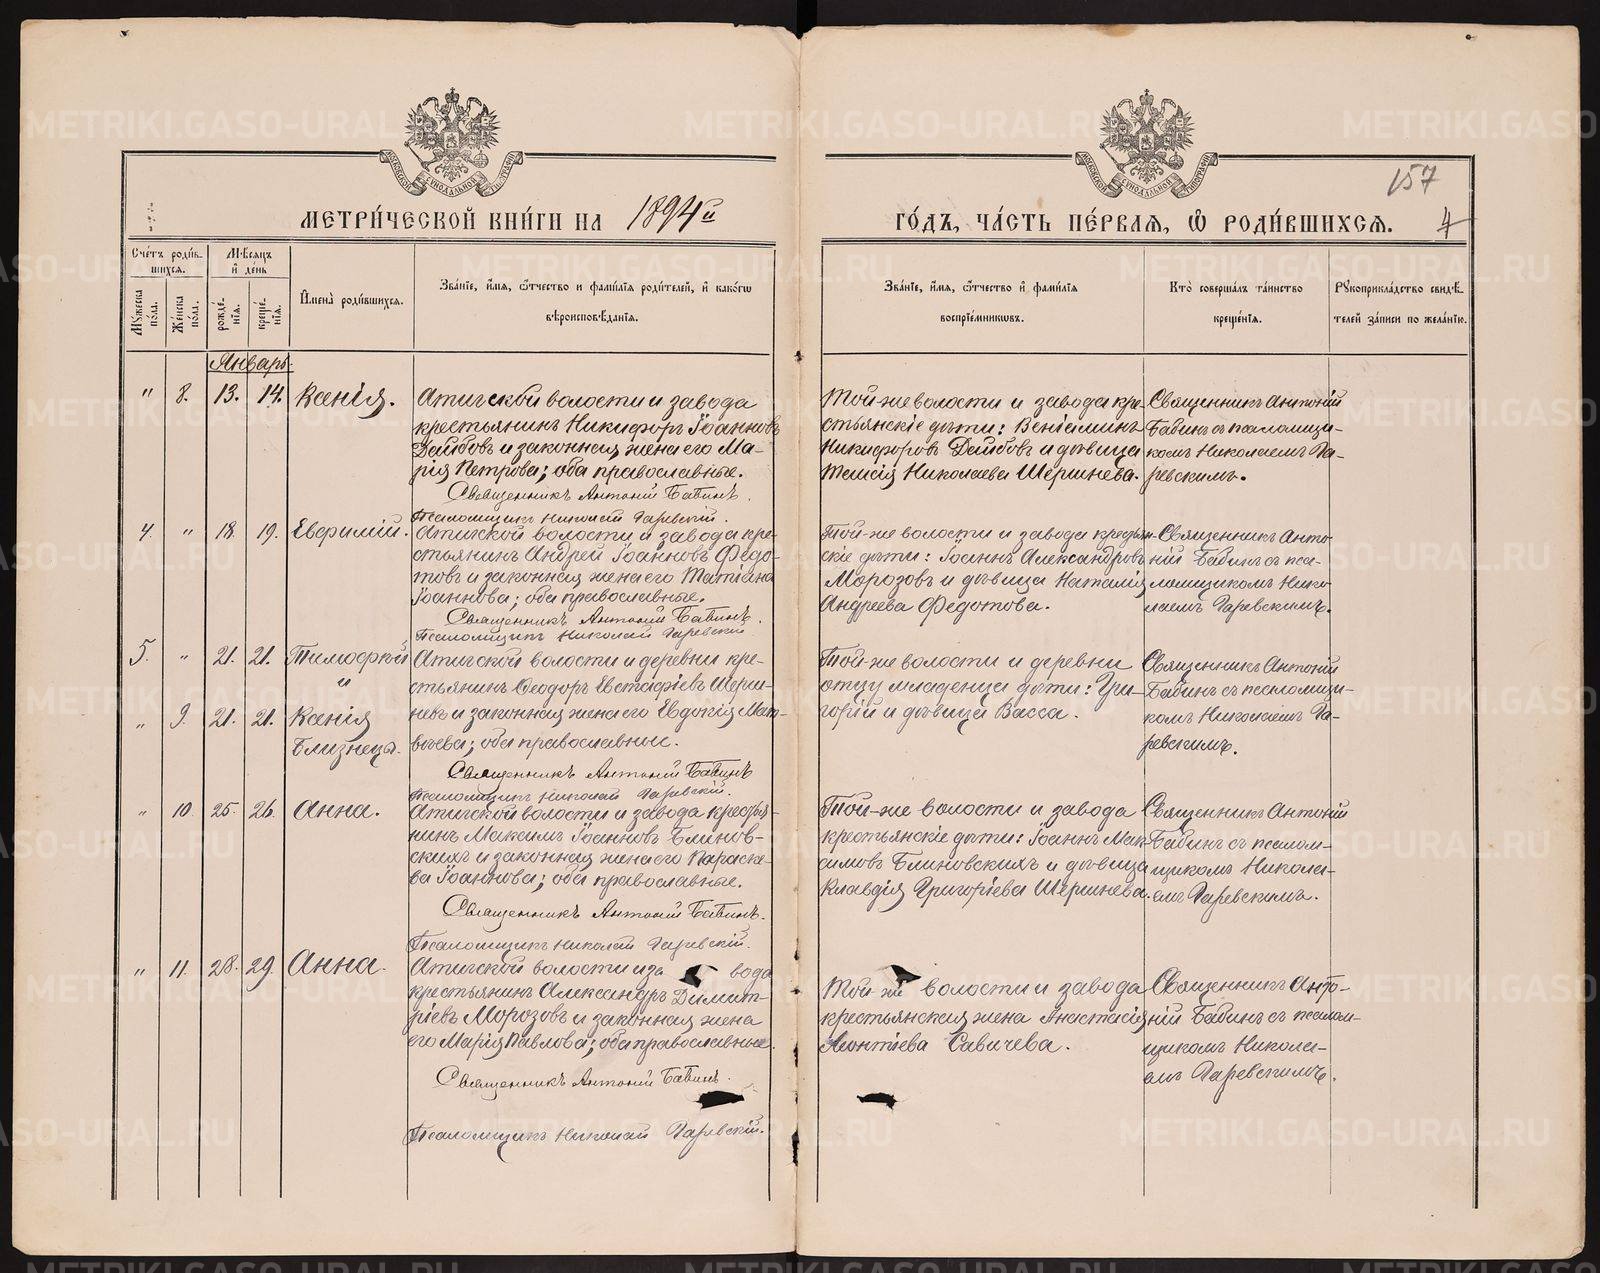 157
4
МЕТРИ́ЧЕСКОЙ КНИ́ГИ НА 1894й
ГО́ДЪ, ЧА́СТЬ ПЕ́РВАѦ, Ѿ РОДИ́ВШИХСѦ.
МОСКОВСКОЙ СѴНОДАЛЬНОЙ ТИПОГРАФІИ
МОСКОВСКОЙ СѴНОДАЛЬНОЙ ТИПОГРАФІИ
Сче́тъ роди́в-
шихсѧ.
Мꙋжеска по́ла.
Же́нска по́ла.
Мѣсѧцъ
и҆ де́нь
рожде́-
нїѧ.
креще́-
нїѧ.
И҆мена̀ роди́вшихсѧ.
Зва́нїе, и҆́мѧ, ѻ҆́тчество и҆ фами́лїѧ роди́телей, и҆ како́гѡ
вѣроисповѣ́данїѧ.
Зва́нїе, и҆́мѧ, ѻ҆́тчество и҆ фами́лїѧ
воспрїе́мникѡвъ.
Кто̀ соверша́лъ та́инство
креще́нїѧ.
Рꙋкоприкла́дство свидѣ́-
телей за́писи по жела́нїю.
Январь
" 8. 13. 14. Ксенія.
Атигской волости и завода
крестьянинъ Никифоръ Іоанновъ
Дейбовъ и законная жена его Ма-
рія Петрова; оба православные.
Священникъ Антоній Бабинъ.
Псаломщикъ Николай Гаревскій.
Той-же волости и завода кре-
стьянскіе дѣти: Веніаминъ
Никифоровъ Дейбовъ и дѣвица
Николаева Шершнева.
Священникъ Антоній
Бабинъ съ псаломщи-
комъ Николаемъ Га-
ревскимъ.
4. " 18. 19. Евфимій.
Атигской волости и завода кре-
стьянинъ Андрей Іоанновъ Федо-
товъ и законная жена его Татіана
Іоаннова; оба православные.
Священникъ Антоній Бабинъ.
Псаломщикъ Николай Гаревскій
Той-же волости и завода крестьян-
скіе дѣти: Іоаннъ Александровъ
Морозовъ и дѣвица Наталія
Андреева Федотова.
Священникъ Анто-
ній Бабинъ съ пса-
ломщикомъ Нико-
лаемъ Гаревскимъ.
5. " 21. 21. Тимофей
"
" 9. 21. 21. Ксенія
Близнецы.
Атигской волости и деревни кре-
стьянинъ Феодоръ Евстафіевъ Шерш-
невъ и законная жена его Евдокія Мат-
вѣева; оба православные.
Священникъ Антоній Бабинъ
Псаломщикъ Николай Гаревскій.
Той-же волости и деревни
отцу младенца дѣти: Гри-
горій и дѣвица Васса.
Священникъ Антоній
Бабинъ съ псаломщи-
комъ Николаемъ Га-
ревскимъ.
" 10. 25. 26. Анна.
Атигской волости и завода крестья-
нинъ Максимъ Іоанновъ Блинов-
скихъ и законная жена его Параске-
ва Іоаннова; оба православные.
Священникъ Антоній Бабинъ.
Псаломщикъ Николай Гаревскій.
Той-же волости и завода
крестьянскіе дѣти: Іоаннъ Мак-
симовъ Блиновскихъ и дѣвица
Клавдія Григоріева Шершнева.
Священникъ Антоній
Бабинъ съ псалом-
щикомъ Никола-
емъ Гаревскимъ.
" 11. 28. 29. Анна.
Атигской волости и за вода
крестьянинъ Александръ Димит-
ріевъ Морозовъ и законная жена
его Марія Павлова; оба православные.
Священникъ Антоній Бабинъ.
Псаломщикъ Николай Гаревскій.
Той-же волости и завода
крестьянская жена Анастасія
Леонтіева Савичева.
Священникъ Анто-
ній Бабинъ съ псалом-
щикомъ Никола-
емъ Гаревскимъ.
METRIKI.GASO-URAL.RU